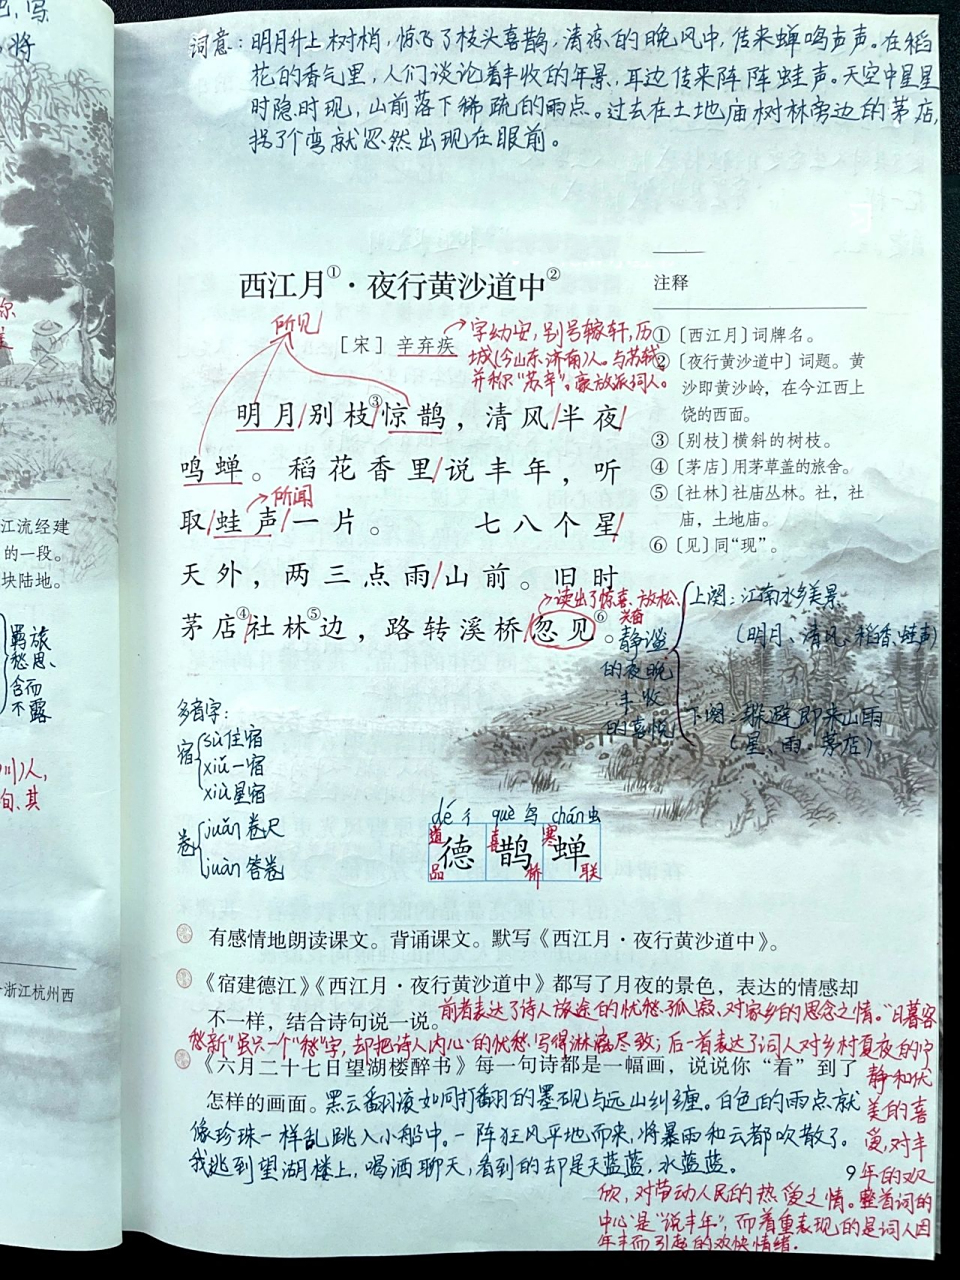 将
词意：明月升上树梢，惊飞了枝头喜鹊，清凉的晚风中，传来蝉鸣声声。在稻
花的香气里，人们谈论着丰收的年景，耳边传来阵阵蛙声。天空中星星
时隐时现，山前落下稀疏的雨点。过去在土地庙树林旁边的茅店，
拐了个弯就忽然出现在眼前。
西江月①·夜行黄沙道中②
所见
［宋］辛弃疾
字幼安，别号稼轩，历
城(今山东济南)人。与苏轼
并称“苏辛”。豪放派词人。
明月/别枝③/惊鹊，清风/半夜/
鸣蝉。稻花香里/说丰年，听
所闻
取/蛙声/一片。 七八个星/
天外，两三点雨/山前。旧时
读出了惊喜、放松、
兴奋
茅店④/社林⑤边，路转溪桥/忽见⑥。
注释
①〔西江月〕词牌名。
②〔夜行黄沙道中〕词题。黄
沙即黄沙岭，在今江西上
饶的西面。
③〔别枝〕横斜的树枝。
④〔茅店〕用茅草盖的旅舍。
⑤〔社林〕社庙丛林。社，社
庙，土地庙。
⑥〔见〕同“现”。
静谧
的夜晚
丰收
的喜悦
上阕：江南水乡美景
(明月、清风、稻香、蛙声)
下阕：躲避即来山雨
(星、雨、茅店)
江流经建
的一段。
块陆地。
羁旅
愁思、
含而
不露
川)人，
浙江杭州西
多音字：
宿 sù住宿
xiǔ一宿
xiù星宿
卷 juǎn卷尺
juàn答卷
dé彳 què鸟 chán虫
道 喜 寒
德鹊蝉
品 桥 联
有感情地朗读课文。背诵课文。默写《西江月·夜行黄沙道中》。
《宿建德江》《西江月·夜行黄沙道中》都写了月夜的景色，表达的情感却
不一样，结合诗句说一说。
前者表达了诗人旅途的忧愁孤寂，对家乡的思念之情。“日暮客
愁新”虽只一个“愁”字，却把诗人内心的忧愁写得淋漓尽致；后者表达了词人对乡村夏夜的宁
静和优
美的喜
爱，对丰
年的欢
欣，对劳动人民的热爱之情。整首词的
中心是“说丰年”，而着重表现的是词人因
年丰而引起的欢快情绪。
《六月二十七日望湖楼醉书》每一句诗都是一幅画，说说你“看”到了
怎样的画面。
黑云翻滚如同打翻的墨砚与远山纠缠。白色的雨点就
像珍珠一样乱跳入小船中。一阵狂风平地而来，将暴雨和云都吹散了。
我逃到望湖楼上，喝酒聊天，看到的却是天蓝蓝，水蓝蓝。
9